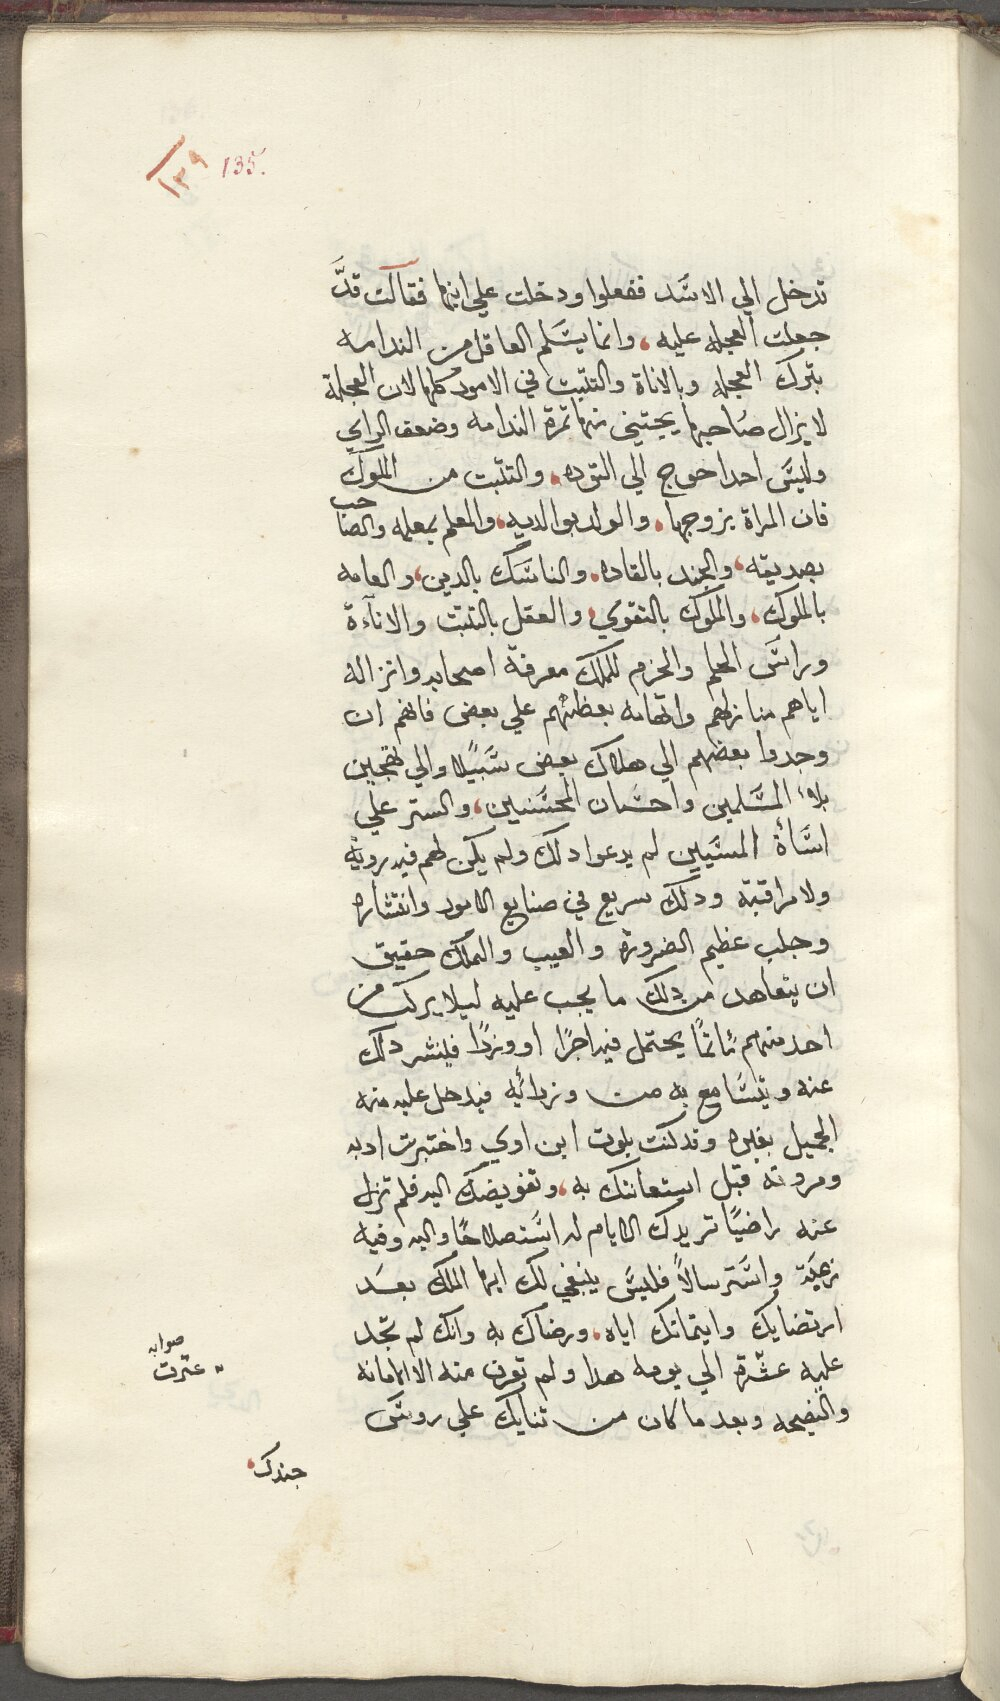 ١٣٩ 135.
تدخل الي الاسد ففعلوا ودخلت علي ابنها فقالت قد
جعلت العجله عليه، وانما يسلم العاقل من الندامه
بترك العجله وبالاناة والتثبت في الامور كلها لان العجلة
لا يزال صاحبها يجتني منها ثمرة الندامه وضعف الراي
وليس احدا حوج الي التوده، والتثبت من الملوك
فان المراة بزوجها، والولد بوالديه، والمعلم بمعلمه والصاحب
بصديقه، والجند بالقاده، والناسك بالدين، والعامه
بالملوك، والملوك بالتقوي، والعقل بالتثبت والاناءة
وراس الحلم والحزم للملك معرفة اصحابه وانزاله
اياهم منازلهم واتهامه بعظهم علي بعض فانهم ان
وجدوا بعضهم الي هلاك بعض سبيلا والي تهجين
بلاء المسلمين واحسان المحسنين، والستر علي
اساة المسيين لم يدعوا دلك ولم يكن لهم فيه روية
ولا مراقبة ودلك سريع في صنايع الامور وانتشاره
وجلب عظيم الضرورة والعيب والملك حقيق
ان يتعاهد من دلك ما يجب عليه ليلا يركب من
احد منهم ماتما يحتمل فيه اجرا او وزرا فينشر دلك
عنه ويتسامع به من وزرائه فيدخل عليه منه
الجميل بغيره وقد كنت بلوت ابن اوي واختبرت ادبه
ومروته قبل استعانتك به، وتفويضك اليه فلم تزل
عنه راضيا تريدك الايام له استصلاحا واليه وفيه
واسترسالا فليس ينبغي لك ايها الملك بعد
ارتضايك وايتمانك اياه، ورضاك به وانك لم تجد
عليه عشرة الي يومه هدا ولم تعرف منه الا الامانه
والنصيحه وبعد ما كان من ثنايك علي روس
صوابه
عثرت
جندك،